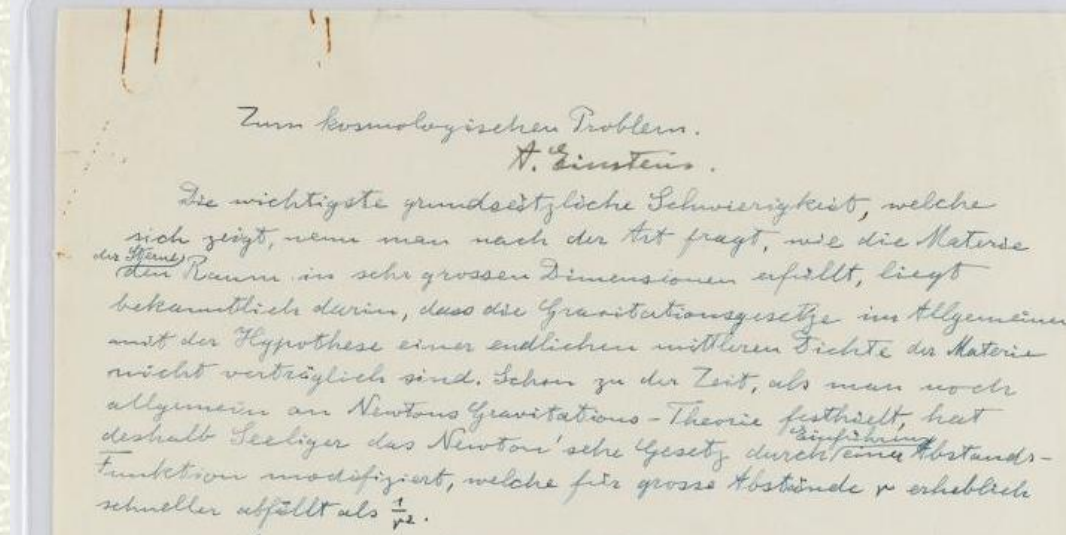 Zum kosmologischen Problem.
A. Einstein.
Die wichtigste grundsätzliche Schwierigkeit, welche
sich zeigt, wenn man nach der Art fragt, wie die Materie
der Sterne
den Raum in sehr grossen Dimensionen erfüllt, liegt
bekanntlich darin, dass die Gravitationsgesetze im Allgemeinen
mit der Hypothese einer endlichen mittleren Dichte der Materie
nicht verträglich sind. Schon zu der Zeit, als man noch
allgemein an Newtons Gravitations-Theorie festhielt, hat
Einführung
deshalb Seeliger das Newton'sche Gesetz durch eine Abstands-
Funktion modifiziert, welche für grosse Abstände r erheblich
schneller abfällt als 1/r².